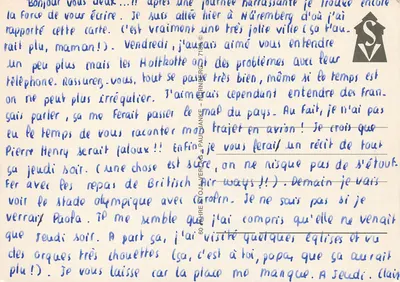 Bonjour vous deux...!! après une journée harrassante je trouve encore
la force de vous écrire. Je suis allée hier à Nüremberg d'où j'ai
rapporté cette carte. C'est vraiment une très jolie ville (ça t'au-
rait plu, maman!). Vendredi, j'aurais aimé vous entendre
un peu plus mais les Holtkotte ont des problèmes avec leur
téléphone. Rassurez-vous, tout se passe très bien, même si le temps est
on ne peut plus irrégulier. J'aimerais cependant entendre des fran-
çais parler, ça me ferait passer le mal du pays. Au fait, je n'ai pas
eu le temps de vous raconter mon trajet en avion! Je crois que
Pierre Henry serait jaloux!! Enfin je vous ferai un récit de tout
ça jeudi soir. (une chose est sûre, on ne risque pas de s'étouf-
fer avec les repas de British Air ways!!). Demain je vais
voir le stade olympique avec Carolin. Je ne sais pas si je
verrai Paola. Il me semble que j'ai compris qu'elle ne venait
que Jeudi soir. A part ça, j'ai visité quelques églises et vu
des orgues très chouettes (ça, c'est à toi, papa, que ça aurait
plu!). Je vous laisse car la place me manque. A Jeudi.
S
V